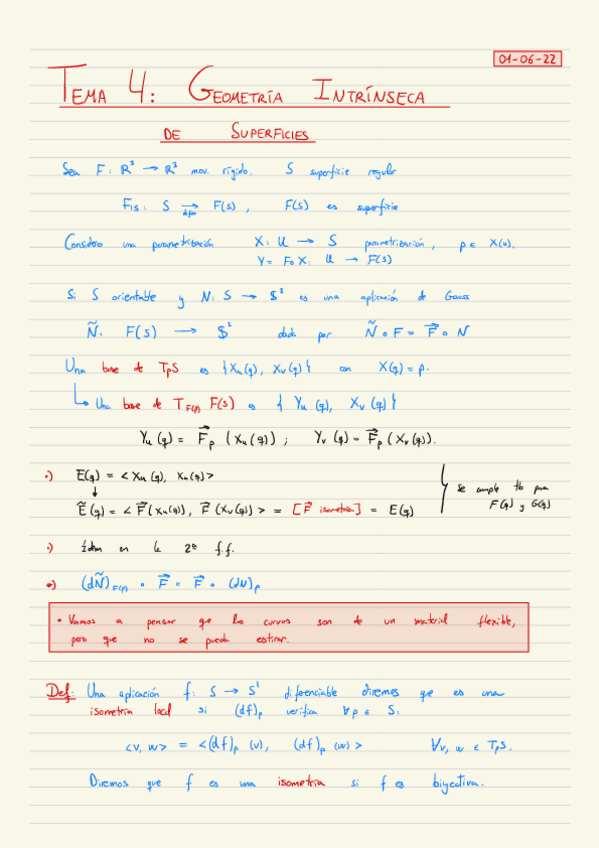 01-06-22
TEMA 4: GEOMETRÍA INTRÍNSECA
DE SUPERFICIES
Sea F: ℝ³ → ℝ³ mov. rígido. S superficie regular
F|s: S → F(S), F(S) es superficie
difeo
Considero una parametrización X: U → S parametrización, p ∈ X(U).
Y = F∘X: U → F(S)
Si S orientable y N: S → $² es una aplicación de Gauss
Ñ: F(S) → $² dada por Ñ∘F = F⃗∘N
Una base de TpS es {Xu(q), Xv(q)} con X(q) = p.
↳ Una base de T_F(p) F(S) es {Yu(q), Xv(q)}
Yu(q) = F⃗p (Xu(q)) ; Yv(q) = F⃗p (Xv(q)).
•) E(q) = <Xu(q), Xu(q)>
↓
Ẽ(q) = <F⃗(Xu(q)), F⃗(Xv(q))> = [F⃗ isometría] = E(q)
Se cumple tb para
F(q) y G(q)
•) ídem en la 2ª f.f.
•) (dÑ)_F(p) ∘ F⃗ = F⃗ ∘ (dN)p
• Vamos a pensar que las curvas son de un material flexible,
pero que no se puede estirar.
Def: Una aplicación f: S → S' diferenciable diremos que es una
isometría local si (df)p verifica ∀p ∈ S:
<v, w> = <(df)p (v), (df)p (w)> ∀v, w ∈ TpS.
Diremos que f es una isometría si f es biyectiva.